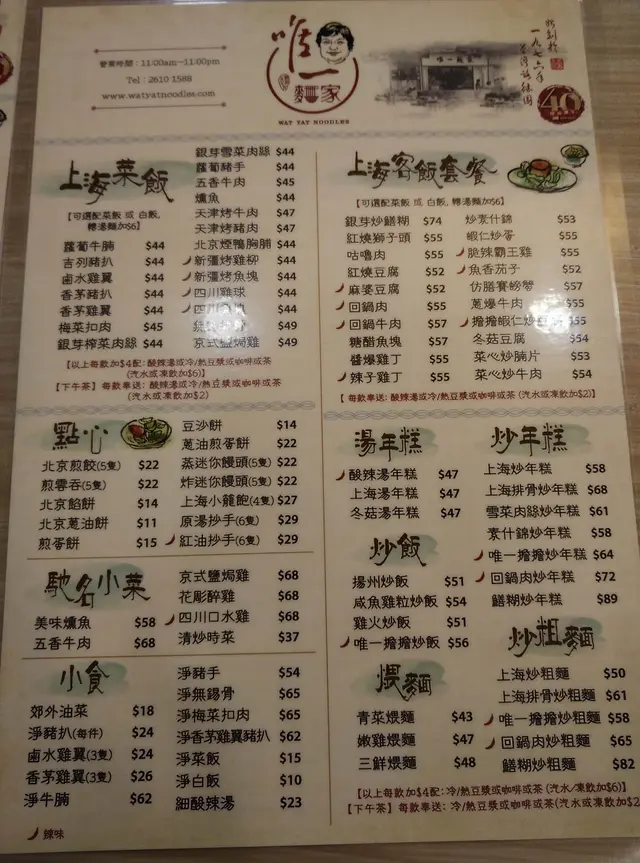 營業時間：11:00am—11:00pm
Tel : 2610 1588
www.watyatnoodles.com
唯一麵家
WAT YAT NOODLES
唯一麵家
一九七六年
40
上海菜飯
【可選配菜飯 或 白飯,
轉湯麵加$6】
蘿蔔牛腩 $44
吉列豬扒 $44
鹵水雞翼 $44
香茅豬扒 $44
香茅雞翼 $44
梅菜扣肉 $45
銀芽榨菜肉絲 $44
銀芽雪菜肉絲 $44
蘿蔔豬手 $44
五香牛肉 $45
燻魚 $44
天津烤牛肉 $47
天津烤豬肉 $47
北京煙鴨胸脯 $44
新疆烤雞柳 $44
新疆烤魚塊 $44
四川雞球 $44
四川 $44
$49
京式鹽焗雞 $49
【以上每款加$4配: 酸辣湯或冷/熱豆漿或咖啡或茶
(汽水或凍飲加$6)】
【下午茶】每款奉送: 酸辣湯或冷/熱豆漿或咖啡或茶
(汽水或凍飲加$2)
上海客飯套餐
【可選配菜飯 或 白飯, 轉湯麵加$6】
銀芽炒鱔糊 $74
紅燒獅子頭 $55
咕嚕肉 $55
紅燒豆腐 $52
麻婆豆腐 $52
回鍋肉 $55
回鍋牛肉 $57
糖醋魚塊 $57
醬爆雞丁 $55
辣子雞丁 $55
炒素什錦 $53
蝦仁炒蛋 $55
脆辣霸王雞 $55
魚香茄子 $52
仿膳賽螃蟹 $57
蔥爆牛肉 $55
擔擔蝦仁炒 $55
冬菇豆腐 $54
菜心炒腩片 $53
菜心炒牛肉 $54
【 每款奉送: 酸辣湯或冷/熱豆漿或咖啡或茶 (汽水或凍飲加$2)】
點心
北京煎餃(5隻) $22
煎雲吞(5隻) $22
北京餡餅 $14
北京蔥油餅 $11
煎蛋餅 $15
豆沙餅 $14
蔥油煎蛋餅 $22
蒸迷你饅頭(5隻) $22
炸迷你饅頭(5隻) $22
上海小籠飽(4隻) $27
原湯抄手(6隻) $29
紅油抄手(6隻) $29
馳名小菜
美味燻魚 $58
五香牛肉 $68
京式鹽焗雞 $68
花彫醉雞 $68
四川口水雞 $68
清炒時菜 $37
小食
郊外油菜 $18
淨豬扒(每件) $24
鹵水雞翼(3隻) $24
香茅雞翼(3隻) $26
淨牛腩 $62
淨豬手 $54
淨無錫骨 $65
淨梅菜扣肉 $65
淨香茅雞翼豬扒 $62
淨菜飯 $15
淨白飯 $10
細酸辣湯 $23
湯年糕
酸辣湯年糕 $47
上海湯年糕 $47
冬菇湯年糕 $47
炒年糕
上海炒年糕 $58
上海排骨炒年糕 $68
雪菜肉絲炒年糕 $61
素什錦炒年糕 $58
唯一擔擔炒年糕 $64
回鍋肉炒年糕 $72
鱔糊炒年糕 $89
炒飯
揚州炒飯 $51
咸魚雞粒炒飯 $54
雞火炒飯 $51
唯一擔擔炒飯 $56
炒粗麵
上海炒粗麵 $50
上海排骨炒粗麵 $61
唯一擔擔炒粗麵 $58
回鍋肉炒粗麵 $65
鱔糊炒粗麵 $82
煨麵
青菜煨麵 $43
嫩雞煨麵 $47
三鮮煨麵 $48
【以上每款加$4配: 冷/熱豆漿或咖啡或茶 (汽水/凍飲加$6)】
【下午茶】每款奉送: 冷/熱豆漿或咖啡或茶(汽水或凍飲加$2
辣味